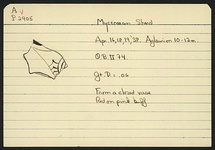 A
P 2905
Mycenaean Sherd
Apr. 16, 18, 19, '38. Aglaurion 10-12 m.
O.B. II 74
Gr. D = .06
From a closed vase
Red on pink buff